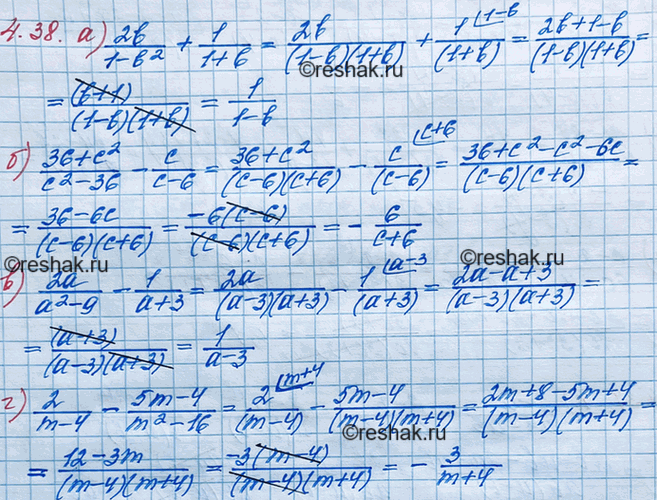 4.38. а) 2b/(1-b²) + 1/(1+b) = 2b/((1-b)(1+b)) + 1/(1+b) ⌊1-b = (2b+1-b)/((1-b)(1+b)) =
©reshak.ru ©reshak.ru
= (b+1)/((1-b)(1+b)) = 1/(1-b)
б) (36+c²)/(c²-36) - c/(c-6) = (36+c²)/((c-6)(c+6)) - c/(c-6) ⌊c+6 = (36+c²-c²-6c)/((c-6)(c+6)) =
= (36-6c)/((c-6)(c+6)) = -6(c-6)/((c-6)(c+6)) = - 6/(c+6)
©reshak.ru ©reshak.ru
в) 2a/(a²-9) - 1/(a+3) = 2a/((a-3)(a+3)) - 1/(a+3) ⌊a-3 = (2a-a+3)/((a-3)(a+3)) =
= (a+3)/((a-3)(a+3)) = 1/(a-3)
г) 2/(m-4) - (5m-4)/(m²-16) = 2/(m-4) ⌊m+4 - (5m-4)/((m-4)(m+4)) = (2m+8-5m+4)/((m-4)(m+4)) =
©reshak.ru
= (12-3m)/((m-4)(m+4)) = -3(m-4)/((m-4)(m+4)) = - 3/(m+4)